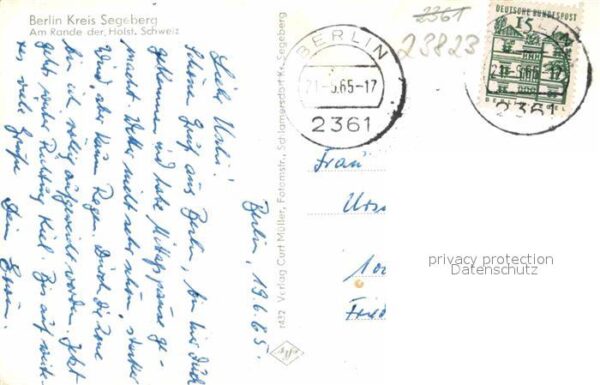 Berlin Kreis Segeberg
Am Rande der Holst. Schweiz
Berlin, 19.6.65.
Liebe Uschi!
Schöne Grüße aus Berlin, bin hier
gekommen und habe Mittagspause ge-
macht. Wetter nicht sehr schön, starker
Wind, aber kaum Regen. Durch die Zone
bin ich völlig aufgeweicht worden. Jetzt
geht's weiter Richtung Kiel. Bis auf weite-
res viele Grüße
Dein Erwin.
1432 Verlag Curt Müller, Fotomstr., Schlamersdorf Kr. Segeberg
Agfa
BERLIN
21.-6.65-17
2361
2361
23823
DEUTSCHE BUNDESPOST
15
2361
Frau
Urs
Fried
privacy protection
Datenschutz